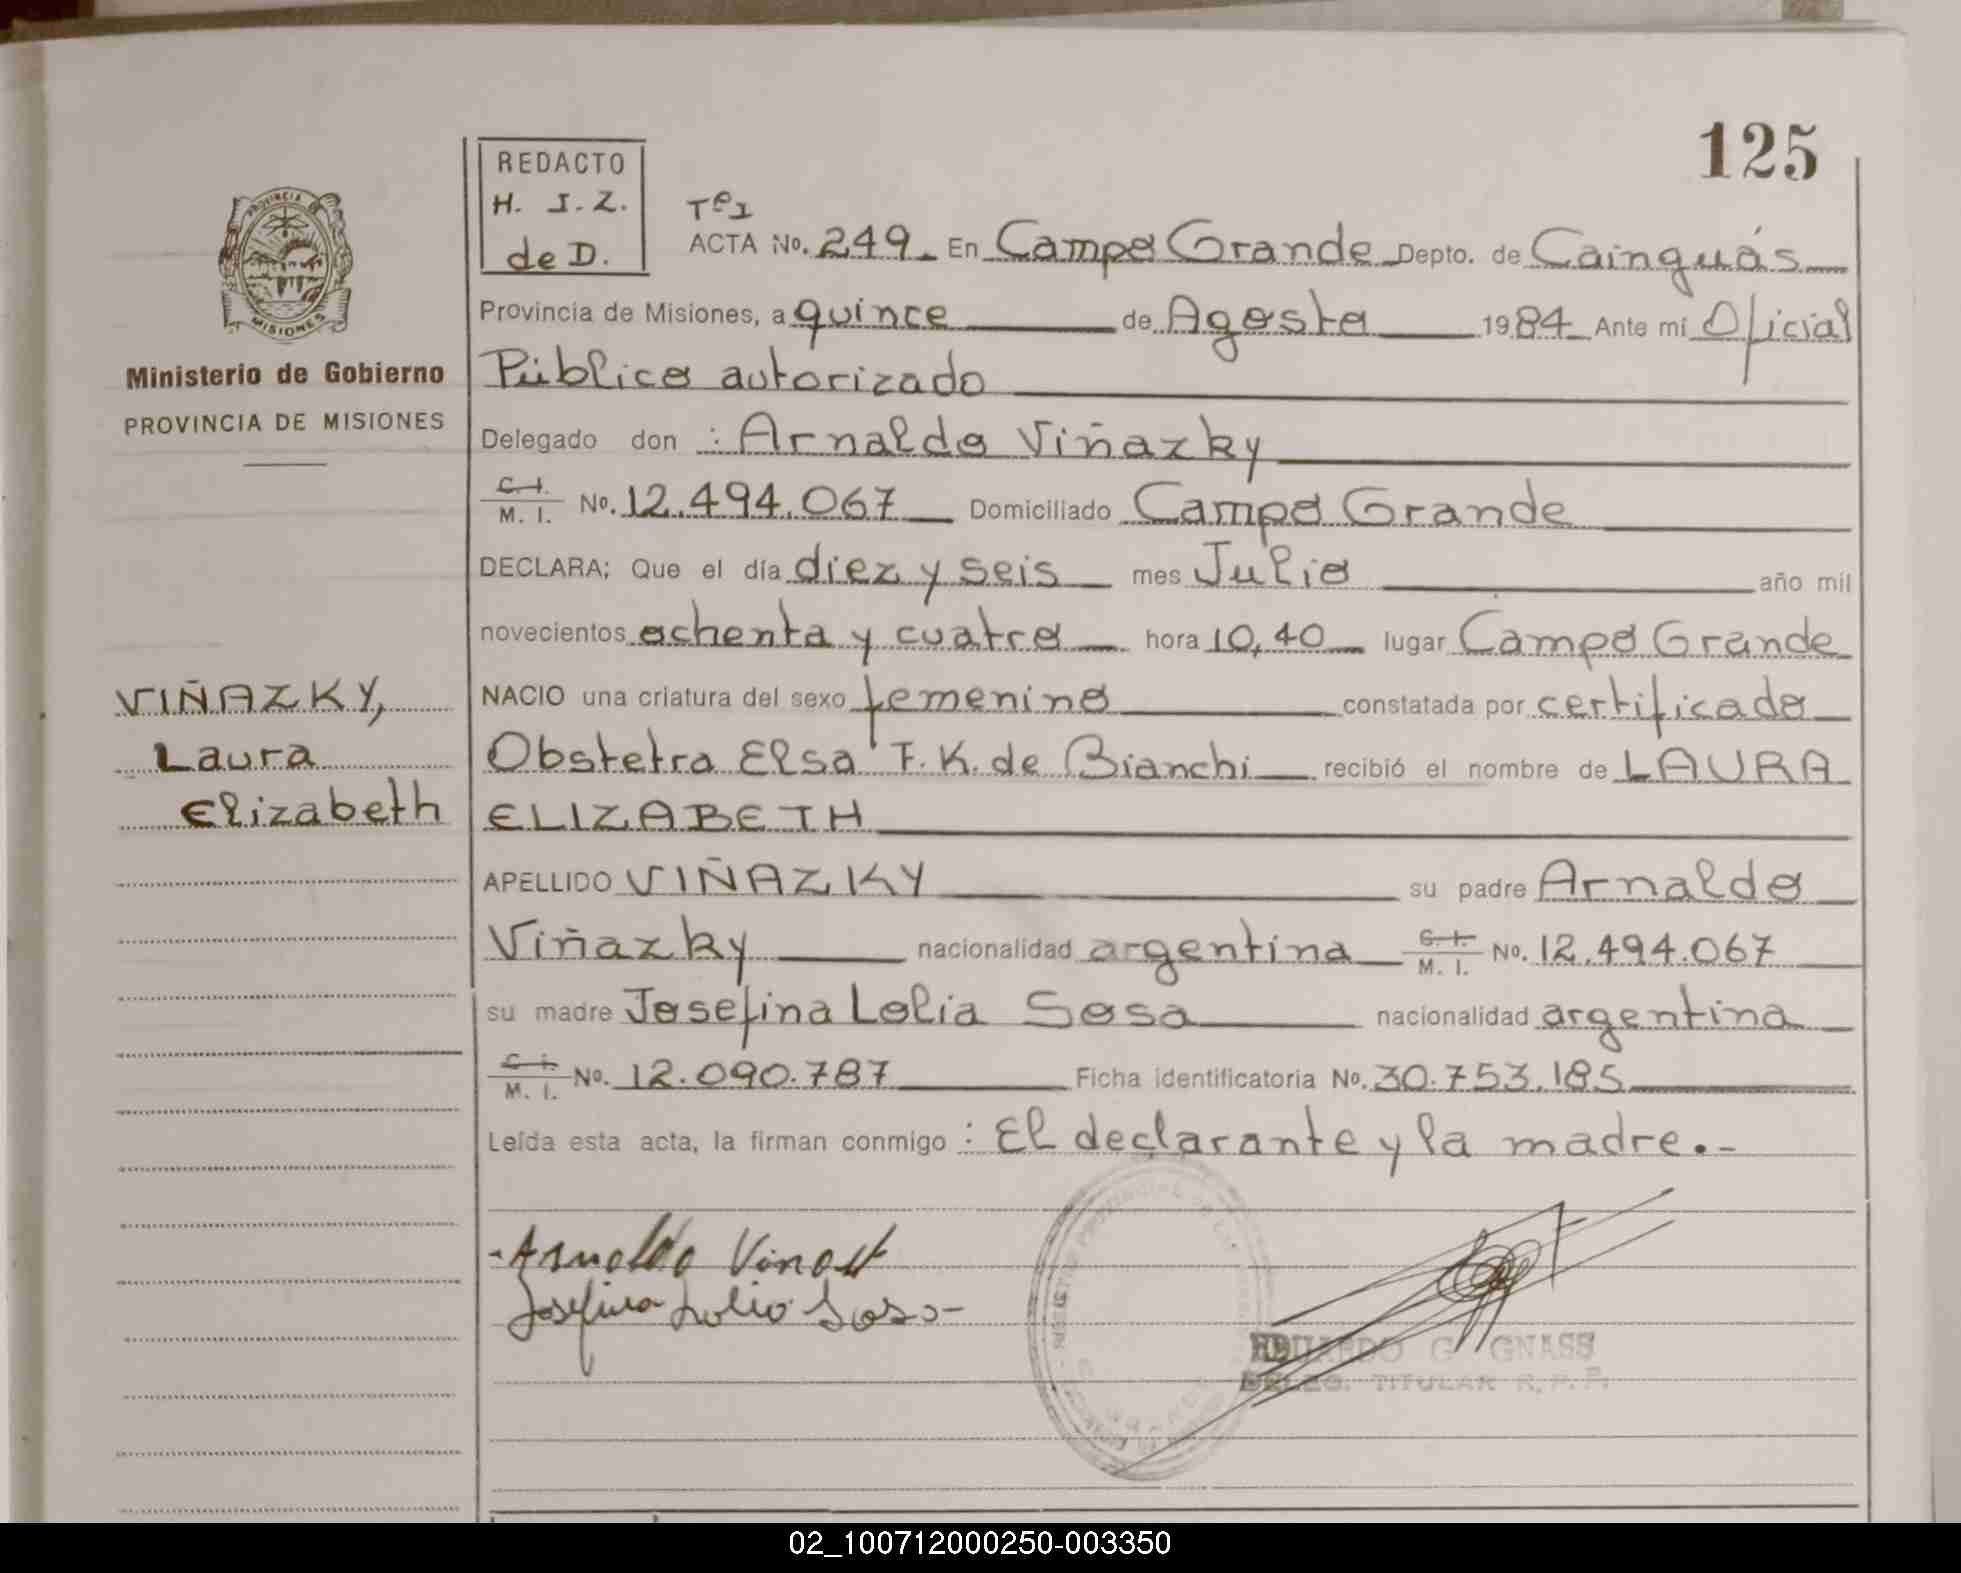 125
REDACTO
H. I. Z.
de D.
PROVINCIA DE
MISIONES
Ministerio de Gobierno
PROVINCIA DE MISIONES
Tº I
ACTA No. 249. En Campo Grande Depto. de Cainguás
Provincia de Misiones, a quince de Agosto 1984 Ante mí Oficial
Público autorizado
Delegado don : Arnaldo Viñazky
C. I.
M. I. No. 12.494.067 Domiciliado Campo Grande
DECLARA; Que el día diez y seis mes Julio año mil
novecientos ochenta y cuatro hora 10,40 lugar Campo Grande
VIÑAZKY,
Laura
Elizabeth
NACIO una criatura del sexo femenino constatada por certificado
Obstetra Elsa F. K. de Bianchi recibió el nombre de LAURA
ELIZABETH
APELLIDO VIÑAZKY su padre Arnaldo
Viñazky nacionalidad argentina C. I. M. I. No. 12.494.067
su madre Josefina Lolia Sosa nacionalidad argentina
C. I.
M. I. No. 12.090.787 Ficha identificatoria No. 30.753.185
Leída esta acta, la firman conmigo : El declarante y la madre.-
Arnaldo
Josefina Lolia Sosa-
EDUARDO G. GNASS
DELEG. TITULAR R. P. P.
02_100712000250-003350